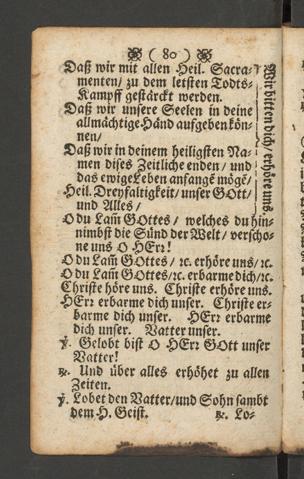 ( 80 )
Daß wir mit allen Heil. Sacra-
menten/ zu dem letsten Todts-
Kampff gestärckt werden.
Daß wir unsere Seelen in deine
allmächtige Händ aufgeben kön-
nen/
Daß wir in deinem heiligsten Na-
men dises Zeitliche enden/ und
das ewige Leben anfangē mögē/
Wir bitten dich/ erhöre uns
Heil. Dreyfaltigkeit/ unser GOtt/
und Alles/
O du Lam̄ GOttes/ welches du hin-
nimbst die Sünd der Welt/ verscho-
ne uns O HErr!
O du Lam̄ GOttes/ ꝛc. erhöre uns/ ꝛc.
O du Lam̄ GOttes/ ꝛc. erbarme dich/ ꝛc.
Christe höre uns. Christe erhöre uns.
HErr erbarme dich unser. Christe er-
barme dich unser. HErr erbarme
dich unser. Vatter unser.
℣. Gelobt bist O HErr GOtt unser
Vatter!
℟. Und über alles erhöhet zu allen
Zeiten.
℣. Lobet den Vatter/ und Sohn sambt
dem H. Geist. ℟. Lo-